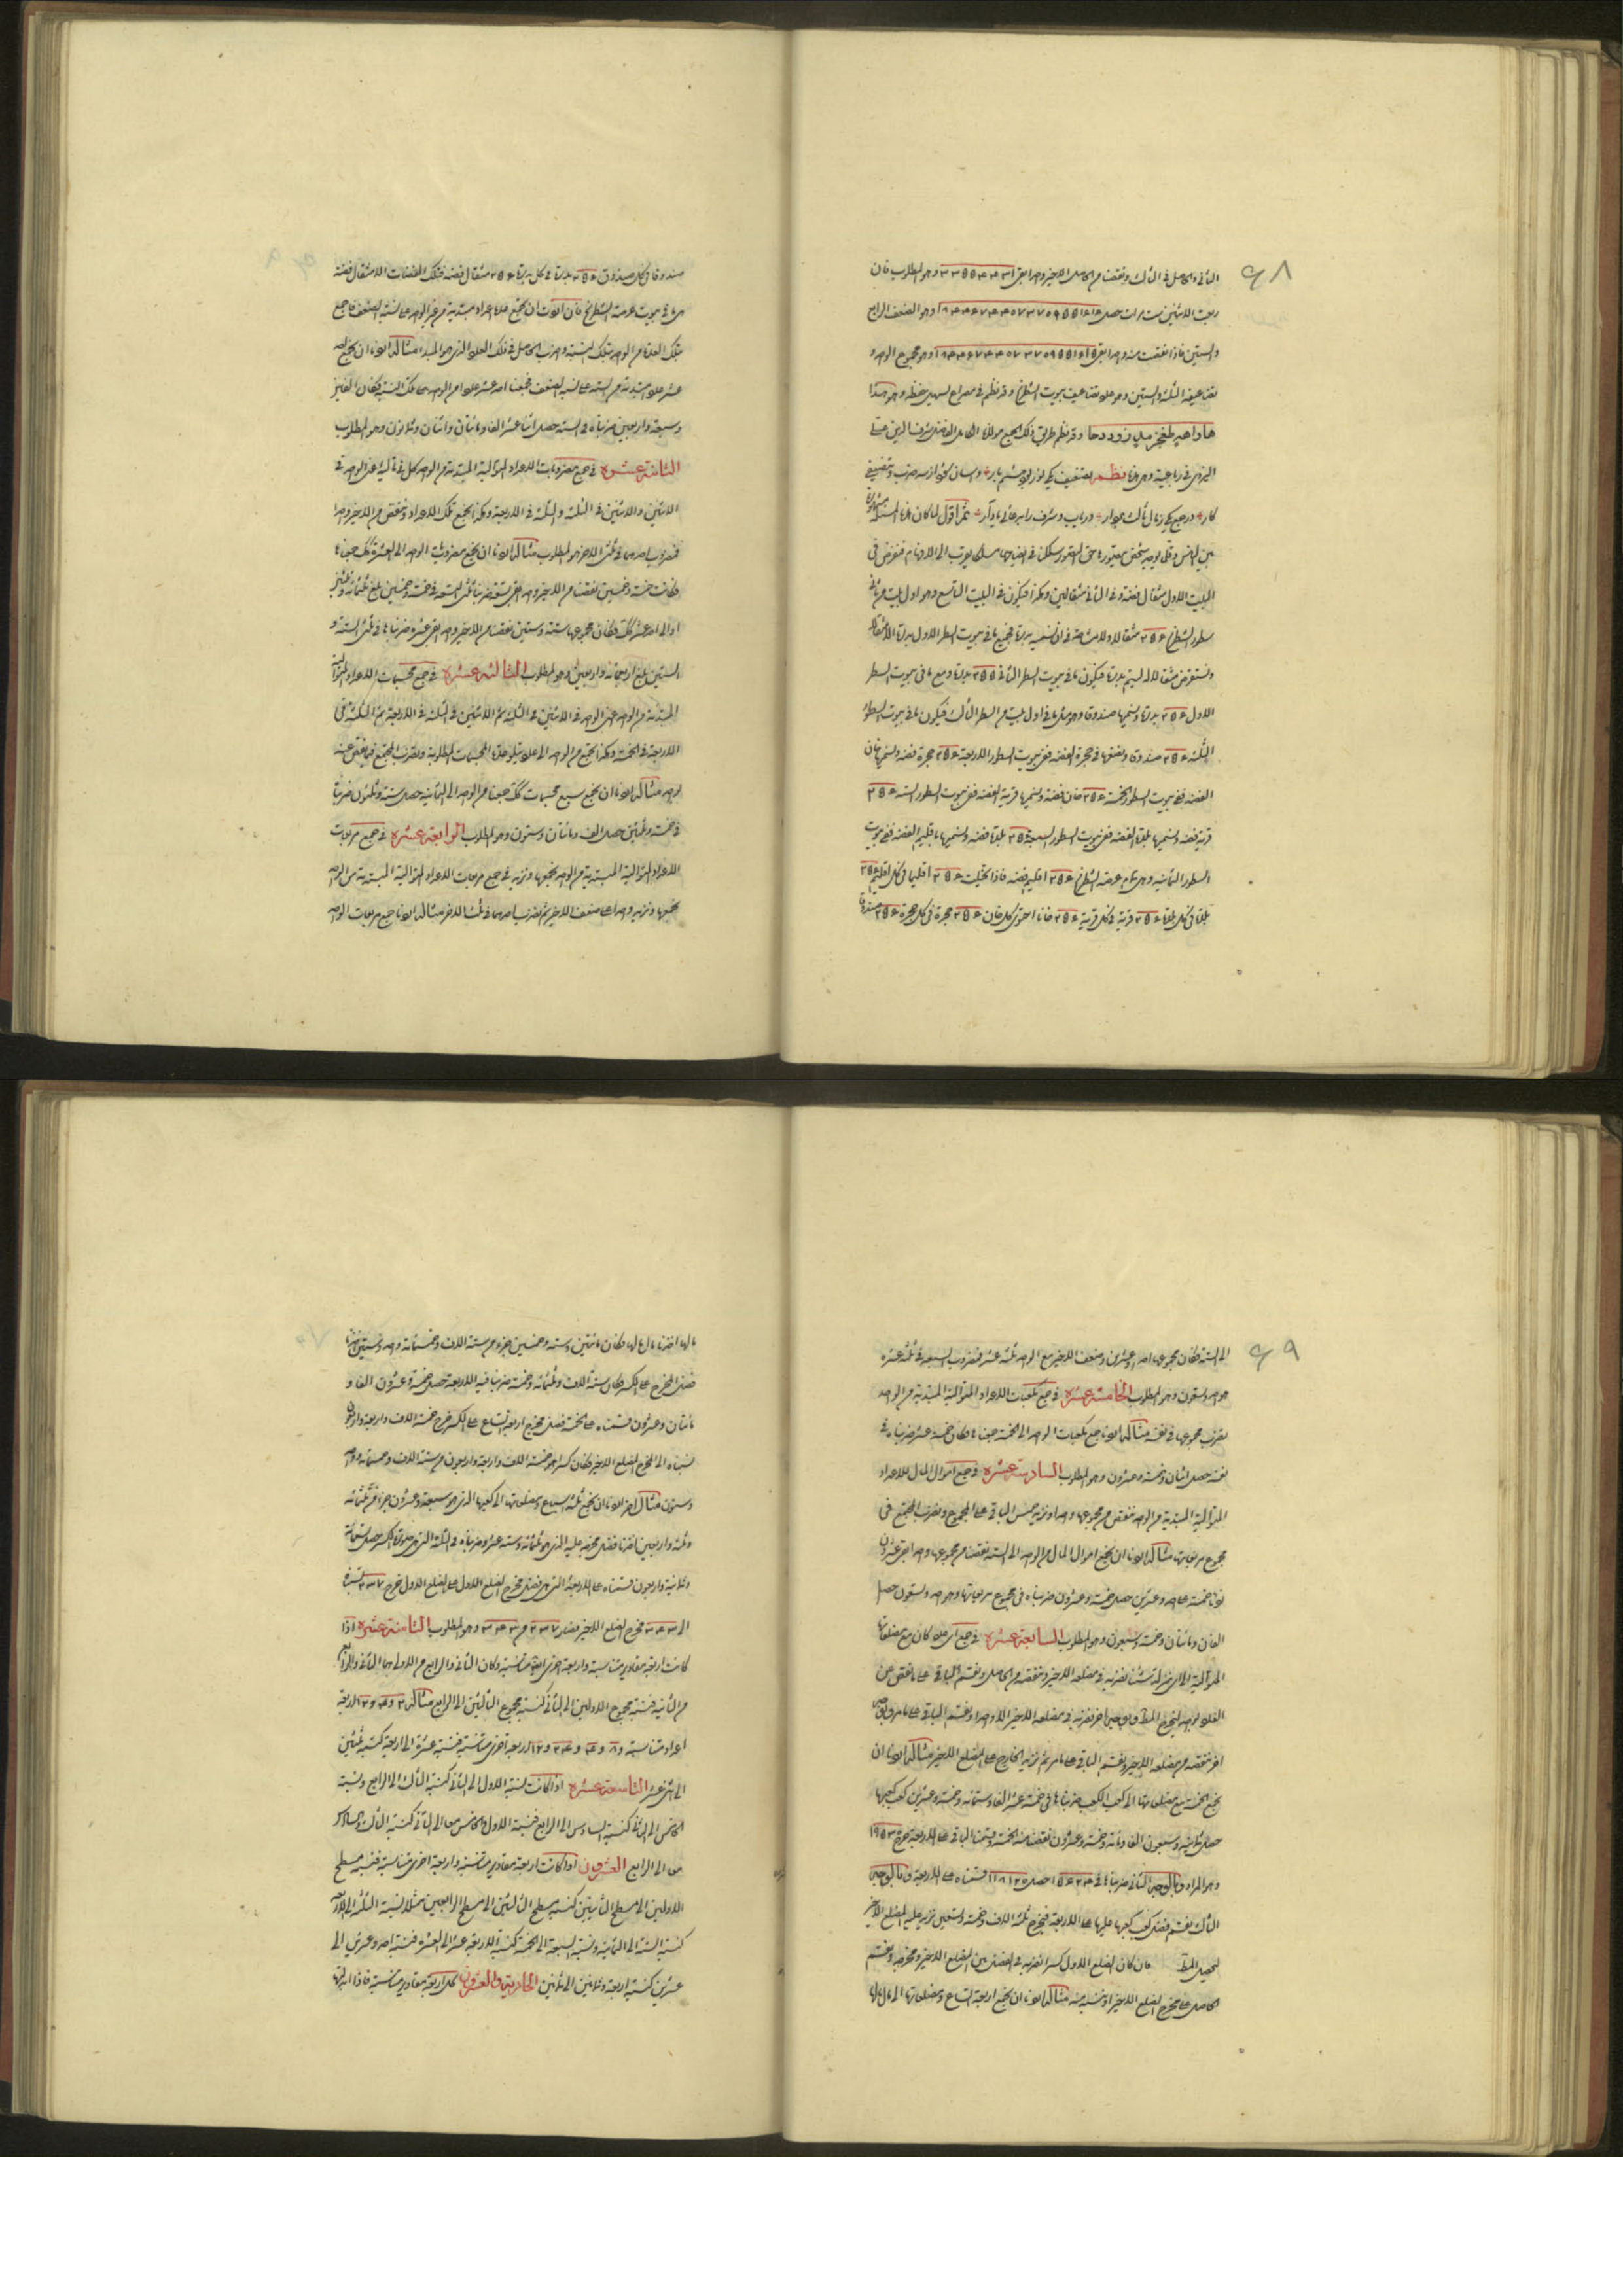 ٦٨
الثانى والحاصل فى الثالث ونقصنا من الحاصل الاخير واحدا بقى وهو المطلوب فان
ربعت الاثنين ست مرات حصل ١٨٤٤٦٧٤٤٠٧٣٧٠٩٥٥١٦١٦ وهو الضعف الرابع
والستين فاذا نقصت منه واحدا بقى ١٨٤٤٦٧٤٤٠٧٣٧٠٩٥٥١٦١٥ وهو مجموع الواحد و
تضاعيفه الثلثة والستين وهو عدد تضاعيف بيوت الشطرنج وقد نظم فى مصراع لسهل حفظه وهو هذا
وقد نظم طريق ذلك الجمع مولانا الكامل الفاضل شرف الدين على
اليزدى فى رباعية وهى هذه نظم
ثم اقول لما كان هذه المسئلة مشهورة
بين الناس وقلما يوجد شخص يتصورها حق التصور سلكنا فى ايضاحها مسلكا يقرب الى الافهام فنفرض فى
البيت الاول مثقال فضة وفى الثانى مثقالين وهكذا فيكون فى البيت التاسع وهو اول بيت من ثانى
سطور الشطرنج ٢٥٦ مثقالا ولا مشاحة فى ان نسميه بدرة فجميع ما فى بيوت السطر الاول بدرة الا مثقالا
ونستقرض مثقالا له ليتم بدرة فيكون ما فى بيوت السطر الثانى ٢٥٥ بدرة ومع ما فى بيوت السطر
الاول ٢٥٦ بدرة ونسميها صندوقا وهو مثل ما فى اول بيت من السطر الثالث فيكون ما فى بيوت السطور
الثلثة ٢٥٦ صندوقا ونضعها فى حجرة الفضة ففى بيوت السطور الاربعة ٢٥٦ حجرة فضة ونسميها خان
الفضة ففى بيوت السطور الخمسة ٢٥٦ خان فضة ونسميها قرية الفضة ففى بيوت السطور الستة ٢٥٦
قرية فضة ونسميها بلدة الفضة ففى بيوت السطور السبعة ٢٥٦ بلدة فضة ونسميها باقليم الفضة ففى بيوت
السطور الثمانية وهى تمام عرصة الشطرنج ٢٥٦ اقليم فضة فاذا تخيلت ٢٥٦ اقليما فى كل اقليم ٢٥٦
بلدة فى كل بلدة ٢٥٦ قرية فى كل قرية ٢٥٦ خانا احتوى كل خان ٢٥٦ حجرة فى كل حجرة ٢٥٦ صندوقا
صندوقا فى كل صندوق ٢٥٦ بدرة فى كل بدرة ٢٥٦ مثقال فضة فتلك الفضات الا مثقال فضة
هى ما فى بيوت عرصة الشطرنج فان اردت ان تجمع عدة اعداد مبتدية من غير الواحد على نسبة الضعف فاجمع
تلك العدة من الواحد بتلك النسبة واضرب الحاصل فى ذلك العدد الذى هو المبدأ مثاله اردنا ان نجمع احد
عشر عددا مبتدية من الستة على نسبة الضعف فجمعنا احد عشر عددا من الواحد على تلك النسبة فكان الفين
وسبعة واربعين ضربناه فى الستة حصل اثنا عشر الفا ومائتان واثنان وثمانون وهو المطلوب
الثانية عشرة فى جمع مضروبات الاعداد المتوالية المبتدية من الواحد كل فى تاليه اعنى الواحد فى
الاثنين والاثنين فى الثلثة والثلثة فى الاربعة وهكذا نجمع تلك الاعداد وتنقص من الاخير واحدا
فمضروب احدهما فى ثلثى الاخر هو المطلوب مثاله اردنا ان نجمع مضروبات الواحد الى العشرة كذلك جمعناها
فكانت خمسة وخمسين نقصنا من الاخير واحدا بقى تسعة ضربنا ثلثى التسعة فى خمسة وخمسين بلغ ثلثمائة وثلثين
او الى احد عشر كذلك فكان مجموعها ستة وستين نقصنا من الاخير واحدا بقى عشرة ضربناها فى ثلثى الستة و
الستين بلغ اربعمائة واربعين وهو المطلوب الثالثة عشرة فى جمع مجسمات الاعداد المتوالية
المبتدية من الواحد اعنى الواحد فى الاثنين فى الثلثة ثم الاثنين فى الثلثة فى الاربعة ثم الثلثة فى
الاربعة فى الخمسة وهكذا نجمع من الواحد الى عدد يتلو عدة المجسمات المطلوبة ونضرب المجتمع فيما ينقص عنه
بواحد مثاله اردنا ان نجمع سبع مجسمات كذلك جمعنا من الواحد الى الثمانية حصل ستة وثلثون ضربناها
فى خمسة وثلثين حصل الف ومائتان وستون وهو المطلوب الرابعة عشرة فى جمع مربعات
الاعداد المتوالية المبتدية من الواحد نجمعها ونزيد فى جمع مربعات الاعداد المتوالية المبتدية من الواحد
نجمعها ونزيد واحدا على ضعف الاخير ثم نضرب احدهما فى ثلث الاخر مثاله اردنا جمع مربعات الواحد
٦٩
الى الستة فكان مجموعها احدا وعشرين وضعف الاخير مع الواحد ثلثة عشر فمضروب السبعة فى ثلثة عشرة
هو احد وتسعون وهو المطلوب الخامسة عشرة فى جمع مكعبات الاعداد المتوالية المبتدية من الواحد
نضرب مجموعها فى نفسه مثاله اردنا جمع مكعبات الواحد الى الخمسة جمعناها فكان خمسة عشر ضربناه فى
نفسه حصل مائتان وخمسة وعشرون وهو المطلوب السادسة عشرة فى جمع اموال المال للاعداد
المتوالية المبتدية من الواحد ننقص من مجموعها واحدا ونزيد خمس الباقى على المجموع ونضرب المجتمع فى
مجموع مربعاتها مثاله اردنا ان نجمع اموال المال من الواحد الى الستة نقصنا من مجموعها واحدا بقى عشرون
زدنا خمسه على احد وعشرين حصل خمسة وعشرون ضربناه فى مجموع مربعاتها وهو احد وتسعون حصل
الفان ومائتان وخمسة وسبعون وهو المطلوب السابعة عشرة فى جمع اى عدد كان مع مضلعاته
المتوالية الى اى منزلة شئنا نضربه فى مضلعه الاخير وننقصه من الحاصل ونقسم الباقى على ما نقص من
العدد بواحد ليخرج المط وبوجه اخر نضربه فى مضلعه الاخير الا واحدا ونقسم الباقى على ما مر وبوجه
اخر ننقصه من مضلعه الاخير ونقسم الباقى على ما مر ثم نزيد الخارج على المضلع الاخير مثاله اردنا ان
نجمع الخمسة مع مضلعاتها الى كعب الكعب ضربناها فى خمسة عشر الفا وستمائة وخمسة وعشرين كعب كعبها
حصل ثمانية وسبعون الفا ومائة وخمسة وعشرون نقصنا منه الخمسة وقسمنا الباقى على الاربعة خرج ١٩٥٣٠
وهو المراد وبالوجه الثانى ضربناها فى ١٥٦٢٤ حصل ٧٨١٢٠ قسمناه على الاربعة وبالوجه
الثالث نقسم فضل كعب كعبها عليها على الاربعة فيخرج ثلثة الاف وخمسة وتسعين نزيد عليه المضلع الاخير
ليحصل المط فان كان المضلع الاول كسرا نضربه فى الفضل بين المضلع الاخير ومخرجه ونقسم
الحاصل على مخرج المضلع الاخير او ننسبه منه مثاله اردنا ان نجمع اربعة اتساع ومضلعاتها الى مال مالها
مالها اخذنا مال مالها فكان مائتين وستة وخمسين جزءا من ستة الاف وخمسمائة واحد وستين اخذنا
فضل المخرج على الكسر فكان ستة الاف وثلثمائة وخمسة ضربنا فيه الاربعة حصل خمسة وعشرون الفا و
مائتان وعشرون قسمناه على الخمسة فضل مخرج اربعة اتساع على الكسر خرج خمسة الاف واربعة واربعون
نسبناه الى المخرج المضلع الاخير فكان كسرا هو خمسة الاف واربعة واربعون من ستة الاف وخمسمائة واحد
وستون مثال اخر اردنا ان نجمع ثلثة اسباع ومضلعاتها الى كعبها الذى هو سبعة وعشرون جزءا من ثلثمائة
وثلثة واربعين اخذنا فضل مخرجه عليه الذى هو ثلثمائة وستة عشر وضربناه فى الثلثة التى هى صورة الكسر حصل تسعمائة
وثمانية واربعون قسمناه على الاربعة التى هى فضل مخرج المضلع الاول على المضلع الاول خرج ٢٣٧ نسبناه
الى ٣٤٣ مخرج المضلع الاخير فصار ٢٣٧ من ٣٤٣ وهو المطلوب الثامنة عشرة اذا
كانت اربعة مقادير متناسبة واربعة اخرى ايضا متناسبة وكان الثانى والرابع من الاولى هما الثانى والرابع
من الثانية فنسبة مجموع الاولين الى الثانى كنسبة مجموع الثالثين الى الرابع مثاله
اعداد متناسبة و اربعة اخرى متناسبة فنسبة عشرة الى اربعة كنسبة ثلثين
الى اثنى عشر التاسعة عشرة اذا كانت نسبة الاول الى الثانى كنسبة الثالث الى الرابع ونسبة
الخامس الى الثانى كنسبة السادس الى الرابع فنسبة الاول والخامس معا الى الثانى كنسبة الثالث والسادس
معا الى الرابع العشرون اذا كانت اربعة مقادير متناسبة واربعة اخرى متناسبة فنسبة مسطح
الاولين الى مسطح الثانيين كنسبة مسطح الثالثين الى مسطح الرابعين مثلا نسبة الثلثة الى الاربعة
كنسبة الستة الى الثمانية ونسبة السبعة الى الخمسة كنسبة الاربعة عشر الى العشرة فنسبة احد وعشرين الى
عشرين كنسبة اربعة وثمانين الى ثمانين الحادية والعشرون كل اربعة مقادير متناسبة فاذا ابدلتها
٧٠